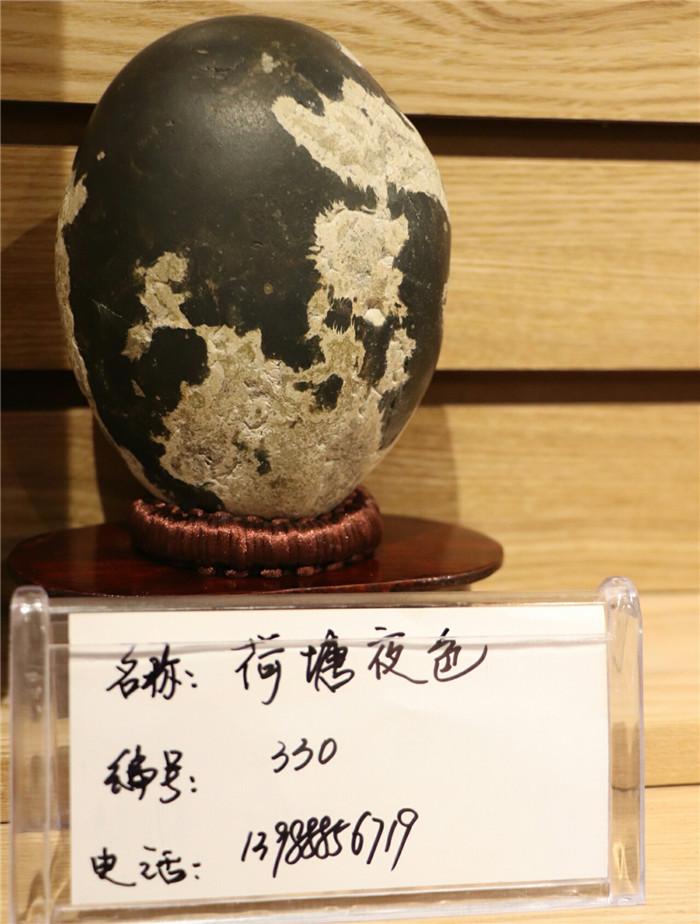 名称：荷塘夜色
编号：330
电话：13988856719